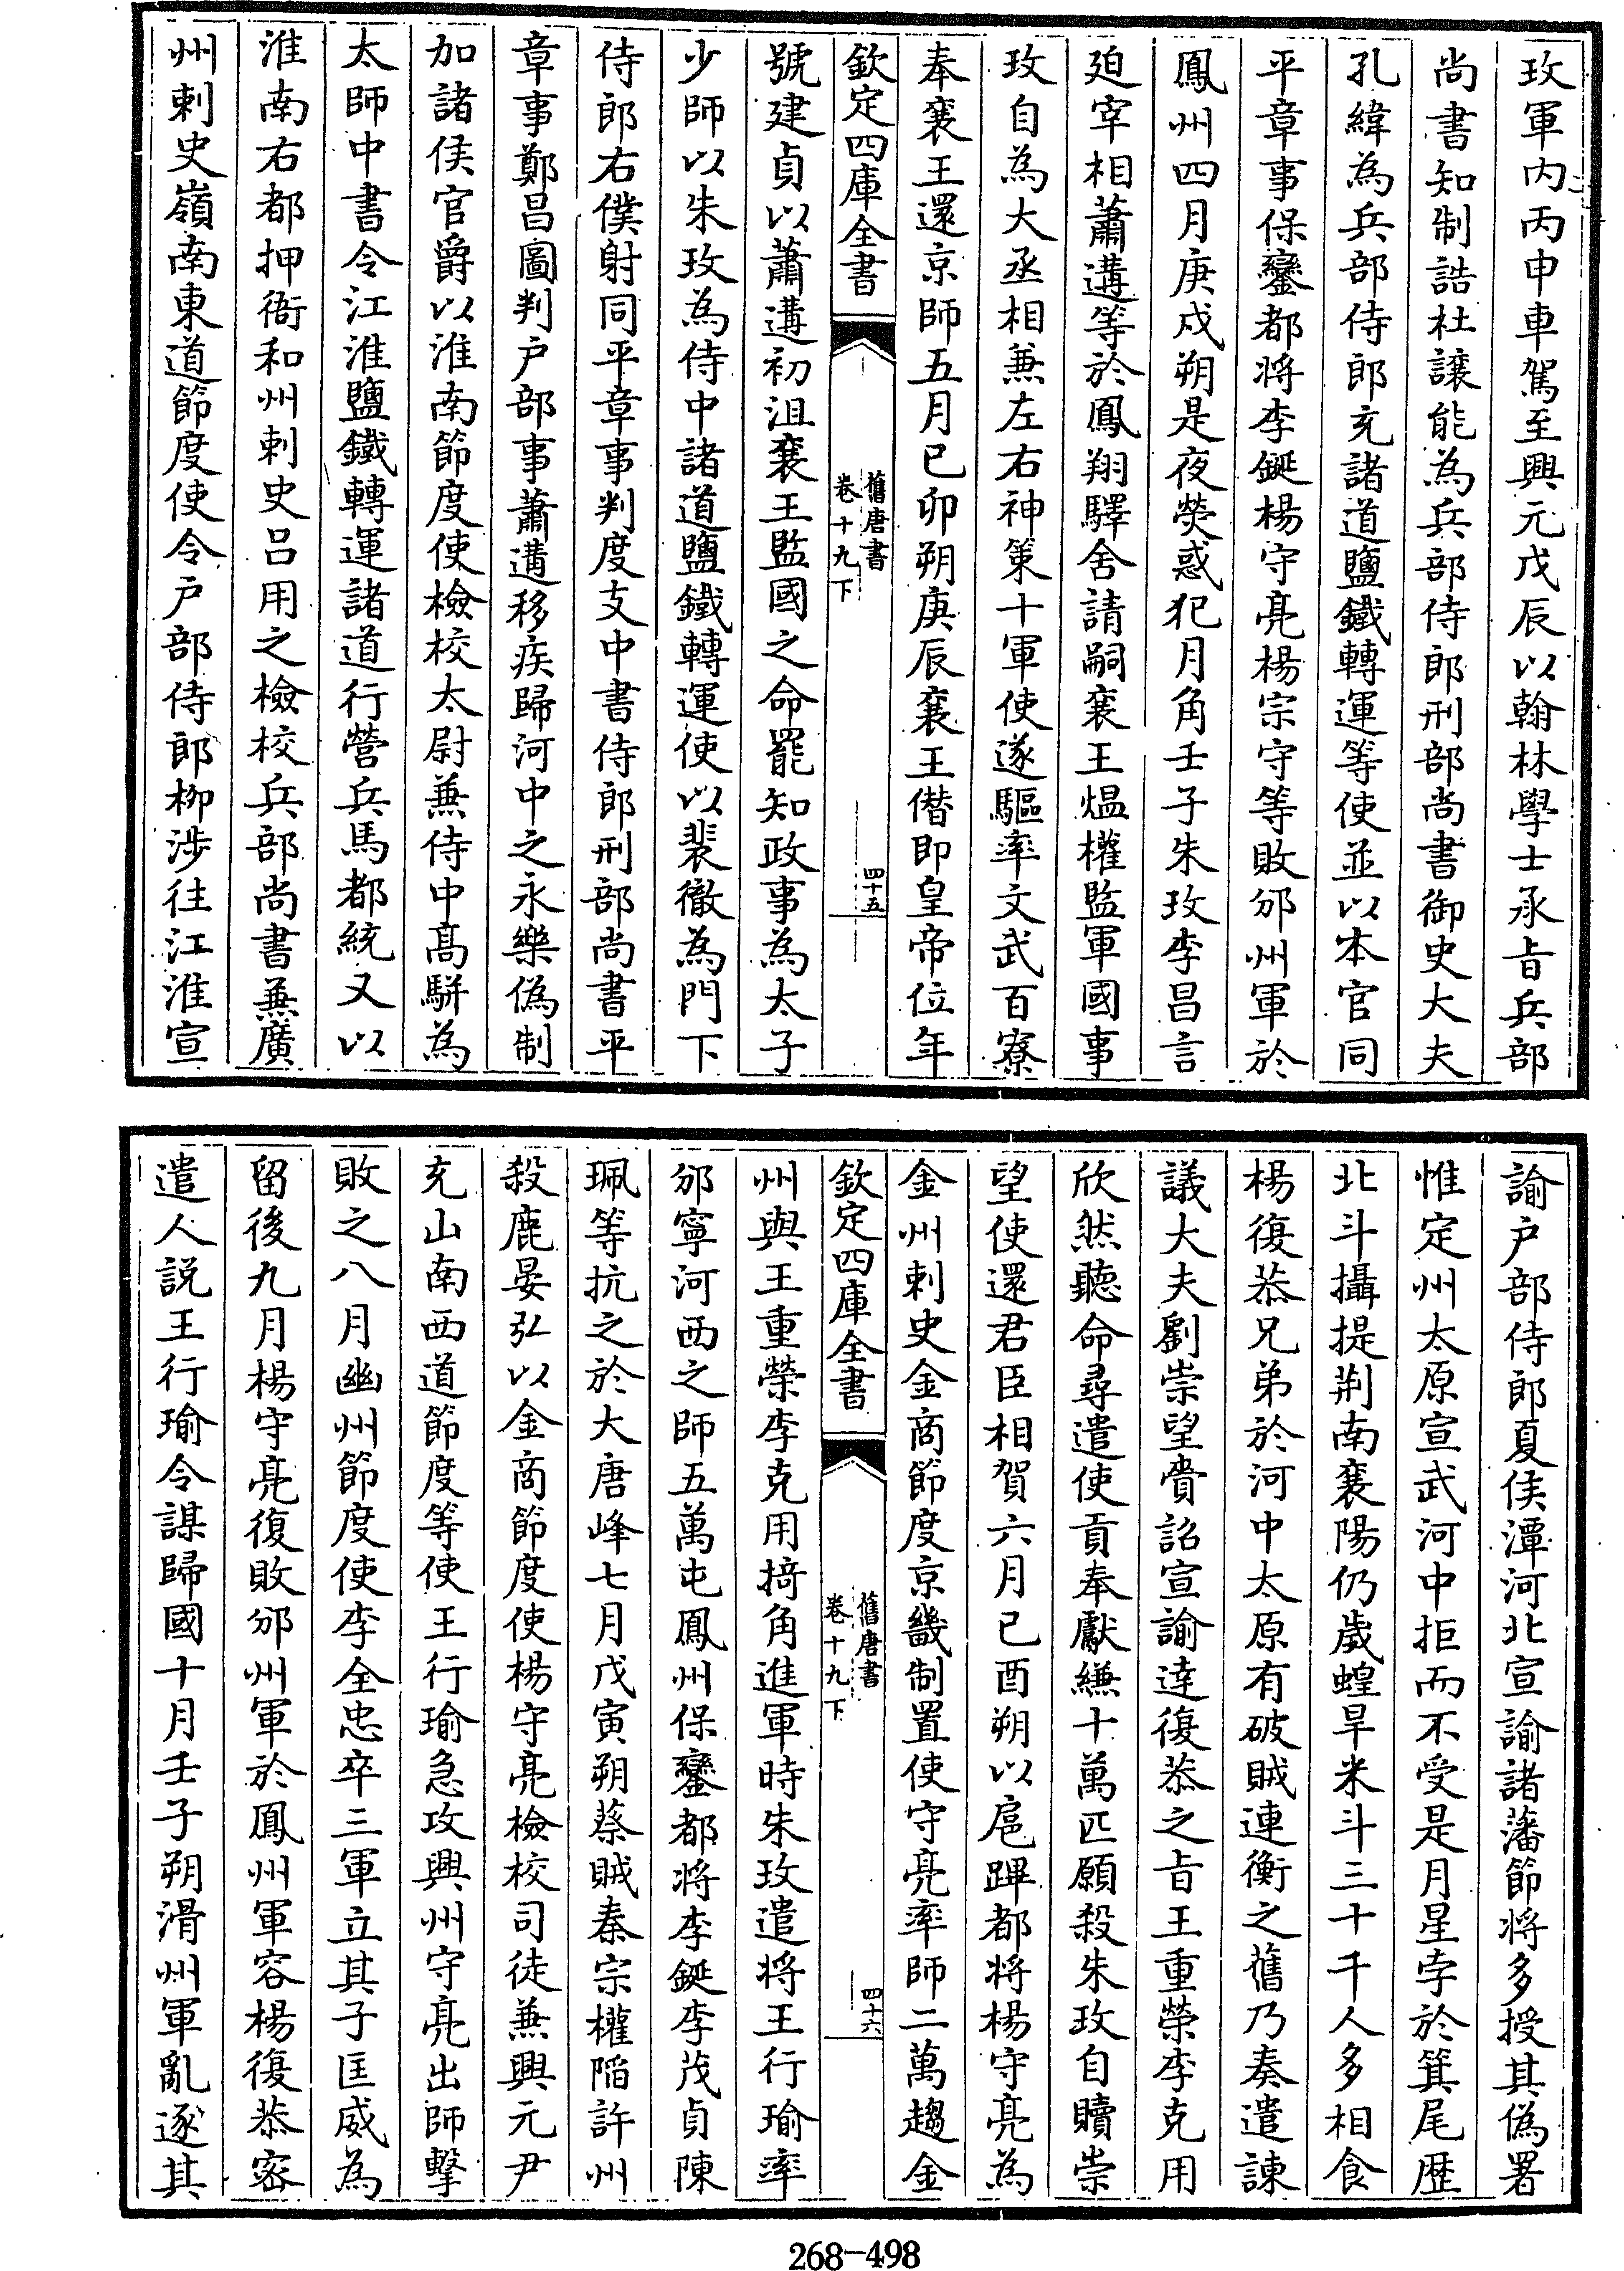 玫軍内丙申車駕至興元戊辰以翰林學士承㫖兵部
尚書知制誥杜讓能為兵部侍郎刑部尚書御史大夫
孔緯為兵部侍郎充諸道鹽鐵轉運等使並以本官同
平章事保鑾都將李鋋楊守亮楊宗守等敗邠州軍於
鳳州四月庚戌朔是夜熒惑犯月角壬子朱玫李昌言
廹宰相蕭遘等於鳳翔驛舍請嗣襄王煴權監軍國事
玫自為大丞相兼左右神策十軍使遂驅率文武百寮
奉襄王還京師五月己卯朔庚辰襄王僭即皇帝位年
欽定四庫全書
舊唐書
卷十九下
四十五
號建貞以蕭遘初沮襄王監國之命罷知政事為太子
少師以朱玫為侍中諸道鹽鐵轉運使以裴徹為門下
侍郎右僕射同平章事判度支中書侍郎刑部尚書平
章事鄭昌圖判户部事蕭遘移疾歸河中之永樂偽制
加諸侯官爵以淮南節度使檢校太尉兼侍中髙駢為
太師中書令江淮鹽鐵轉運諸道行營兵馬都統又以
淮南右都押衙和州刺史吕用之檢校兵部尚書兼廣
州刺史嶺南東道節度使令户部侍郎柳涉往江淮宣
諭户部侍郎夏侯潭河北宣諭諸藩節將多授其偽署
惟定州太原宣武河中拒而不受是月星孛於箕尾歴
北斗攝提荆南襄陽仍歲蝗旱米斗三十千人多相食
楊復恭兄弟於河中太原有破賊連衡之舊乃奏遣諫
議大夫劉崇望賫詔宣諭逹復恭之㫖王重榮李克用
欣然聽命尋遣使貢奉獻縑十萬匹願殺朱玫自贖崇
望使還君臣相賀六月己酉朔以扈蹕都將楊守亮為
金州刺史金商節度京畿制置使守亮率師二萬趨金
欽定四庫全書
舊唐書
卷十九下
四十六
州與王重榮李克用掎角進軍時朱玫遣將王行瑜率
邠寧河西之師五萬屯鳳州保鑾都将李鋋李茂貞陳
珮等抗之於大唐峰七月戊寅朔蔡賊秦宗權陷許州
殺鹿晏弘以金商節度使楊守亮檢校司徒兼興元尹
充山南西道節度等使王行瑜急攻興州守亮出師擊
敗之八月幽州節度使李全忠卒三軍立其子匡威為
留後九月楊守亮復敗邠州軍於鳳州軍容楊復恭宻
遣人説王行瑜令謀歸國十月壬子朔滑州軍亂逐其
268-498